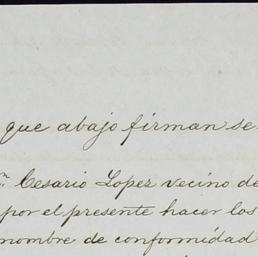 que abajo firman se
n. Cesario Lopez vecino de
por el presente hacer los
nombre de conformidad